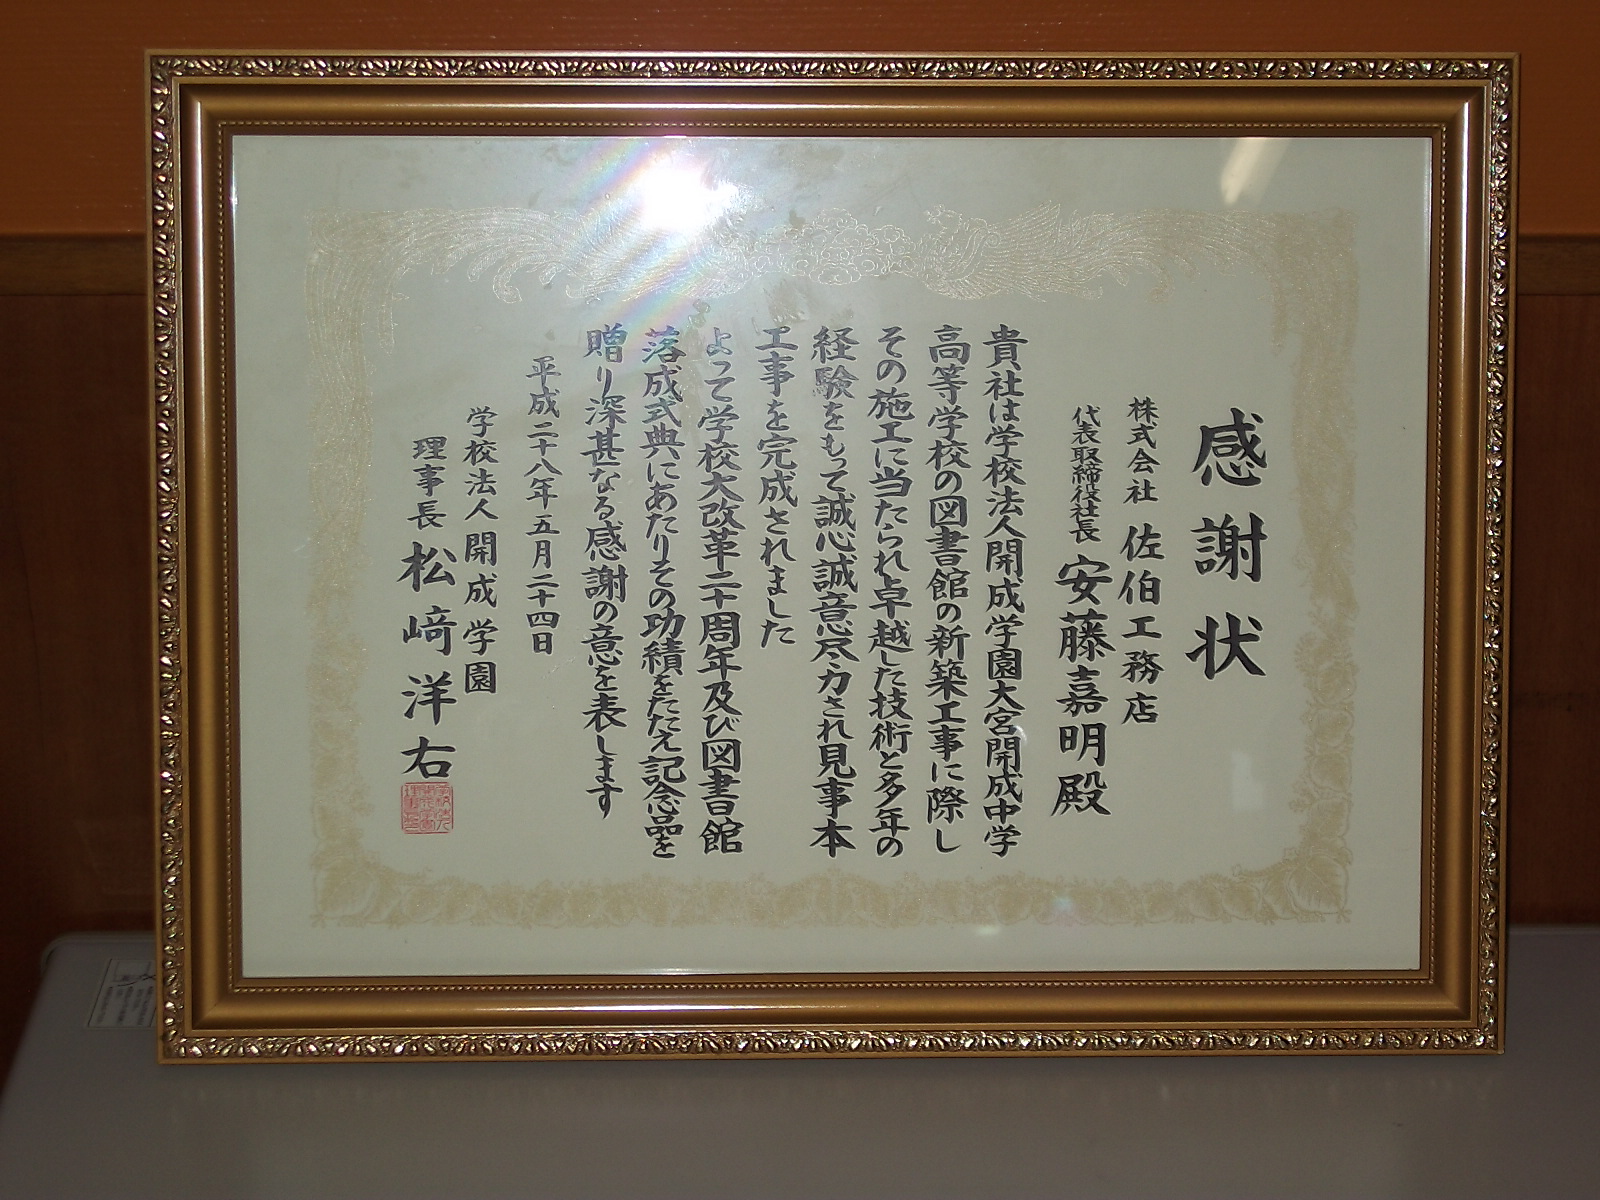 感謝状
株式会社 佐伯工務店
代表取締役社長 安藤嘉明殿
貴社は学校法人開成学園大宮開成中学
高等学校の図書館の新築工事に際し
その施工に当たられ卓越した技術と多年の
経験をもって誠心誠意尽力され見事本
工事を完成されました
よって学校大改革二十周年及び図書館
落成式典にあたりその功績をたたえ記念品を
贈り深甚なる感謝の意を表します
平成二十八年五月二十四日
学校法人開成学園
理事長 松﨑洋右